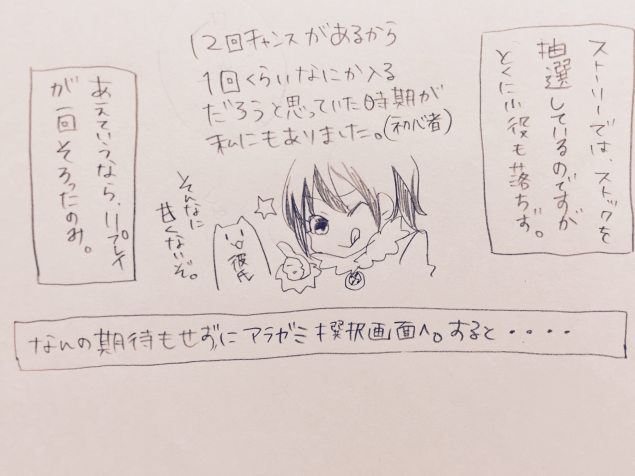 ストーリーでは、ストックを
抽選しているのですが
とくに小役も落ちず。
12回チャンスがあるから
1回くらいなにか入る
だろうと思っていた時期が
私にもありました。(初心者)
そんなに
甘くないぞ。
彼氏
あえていうなら、リプレイ
が一回そろったのみ。
なんの期待もせずにアラガミ選択画面へ。すると・・・・